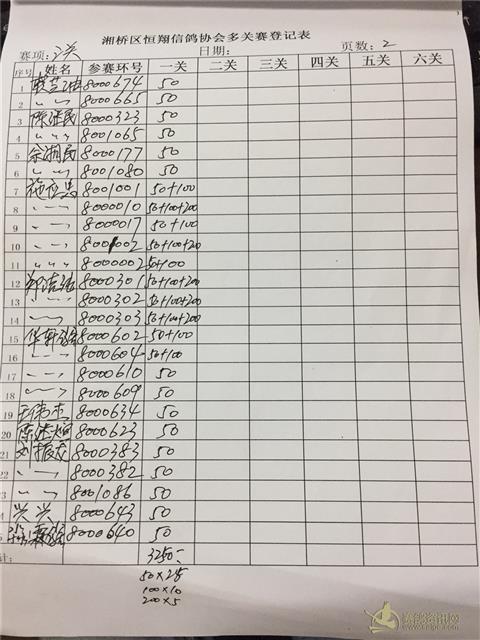 湘桥区恒翔信鸽协会多关赛登记表
赛项: 三关 日期: 页数: 2
序号 姓名 参赛环号 一关 二关 三关 四关 五关 六关
1 8000674 50
2 〃 〃 8000665 50
3 陈泽民 8000323 50
4 〃 〃 8001065 50
5 余湘民 8000177 50
6 〃 〃 8001080 50
7 8001001 50+100
8 〃 〃 8000010 50+100+200
9 〃 〃 8000017 50+100
10 〃 〃 8001002 50+100+200
11 〃 〃 8000002 50+100
12 8000301 50+100+200
13 〃 〃 8000302 50+100+200
14 〃 〃 8000303 50+100+200
15 8000602 50+100
16 〃 〃 8000604 50+100
17 〃 〃 8000610 50
18 〃 〃 8000609 50
19 8000634 50
20 8000623 50
21 8000383 50
22 〃 〃 8000382 50
23 〃 〃 8001086 50
4 兴兴 8000643 50
5 8000640 50
计: 3250-
50×25
100×10
200×5